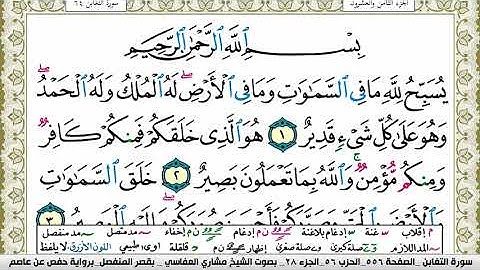 الجزء الثامن والعشرون
سورة التغابن ٦٤
بِسْمِ اللَّهِ الرَّحْمَٰنِ الرَّحِيمِ
يُسَبِّحُ لِلَّهِ مَا فِي السَّمَاوَاتِ وَمَا فِي الْأَرْضِ ۖ لَهُ الْمُلْكُ وَلَهُ الْحَمْدُ ۖ
وَهُوَ عَلَىٰ كُلِّ شَيْءٍ قَدِيرٌ ١ هُوَ الَّذِي خَلَقَكُمْ فَمِنكُمْ كَافِرٌ
وَمِنكُم مُّؤْمِنٌ ۚ وَاللَّهُ بِمَا تَعْمَلُونَ بَصِيرٌ ٢ خَلَقَ السَّمَاوَاتِ
وَالْأَرْضَ ٣
م إقلاب غنة إدغام بلاغنة إدغام مد متصل مد منفصل
المد اللازم صلة كبرى صلة صغرى إظهار قلقلة مد طبيعي اللون الأزرق لا يلفظ
سورة التغابن _ الصفحة ٥٥٦ _ الحزب ٥٦ _ الجزء ٢٨ _ بصوت الشيخ مشاري العفاسي _ بقصر المنفصل _ برواية حفص عن عاصم